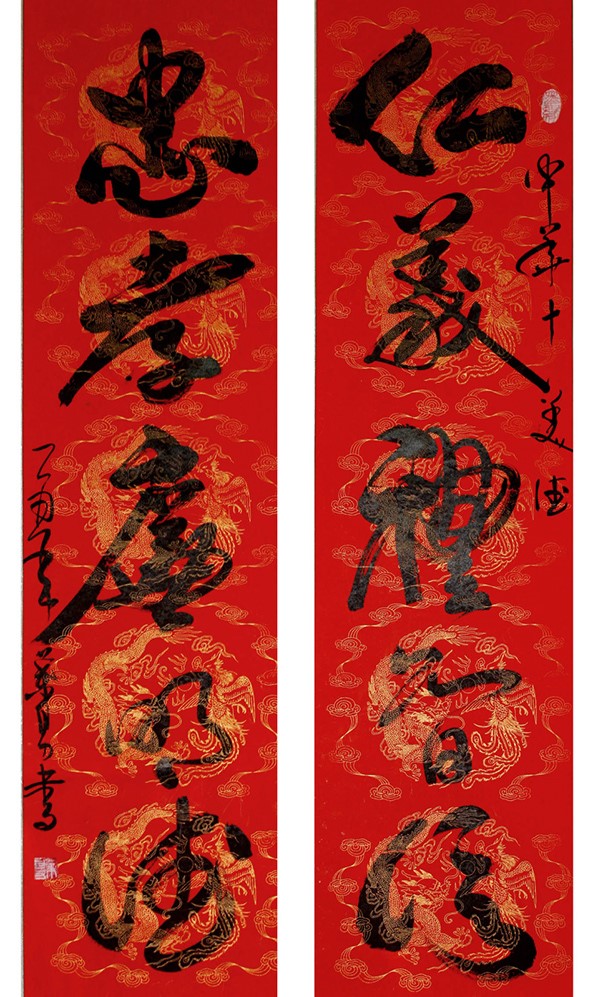 中華十美德
仁義禮智信
忠孝明德
丁酉年書